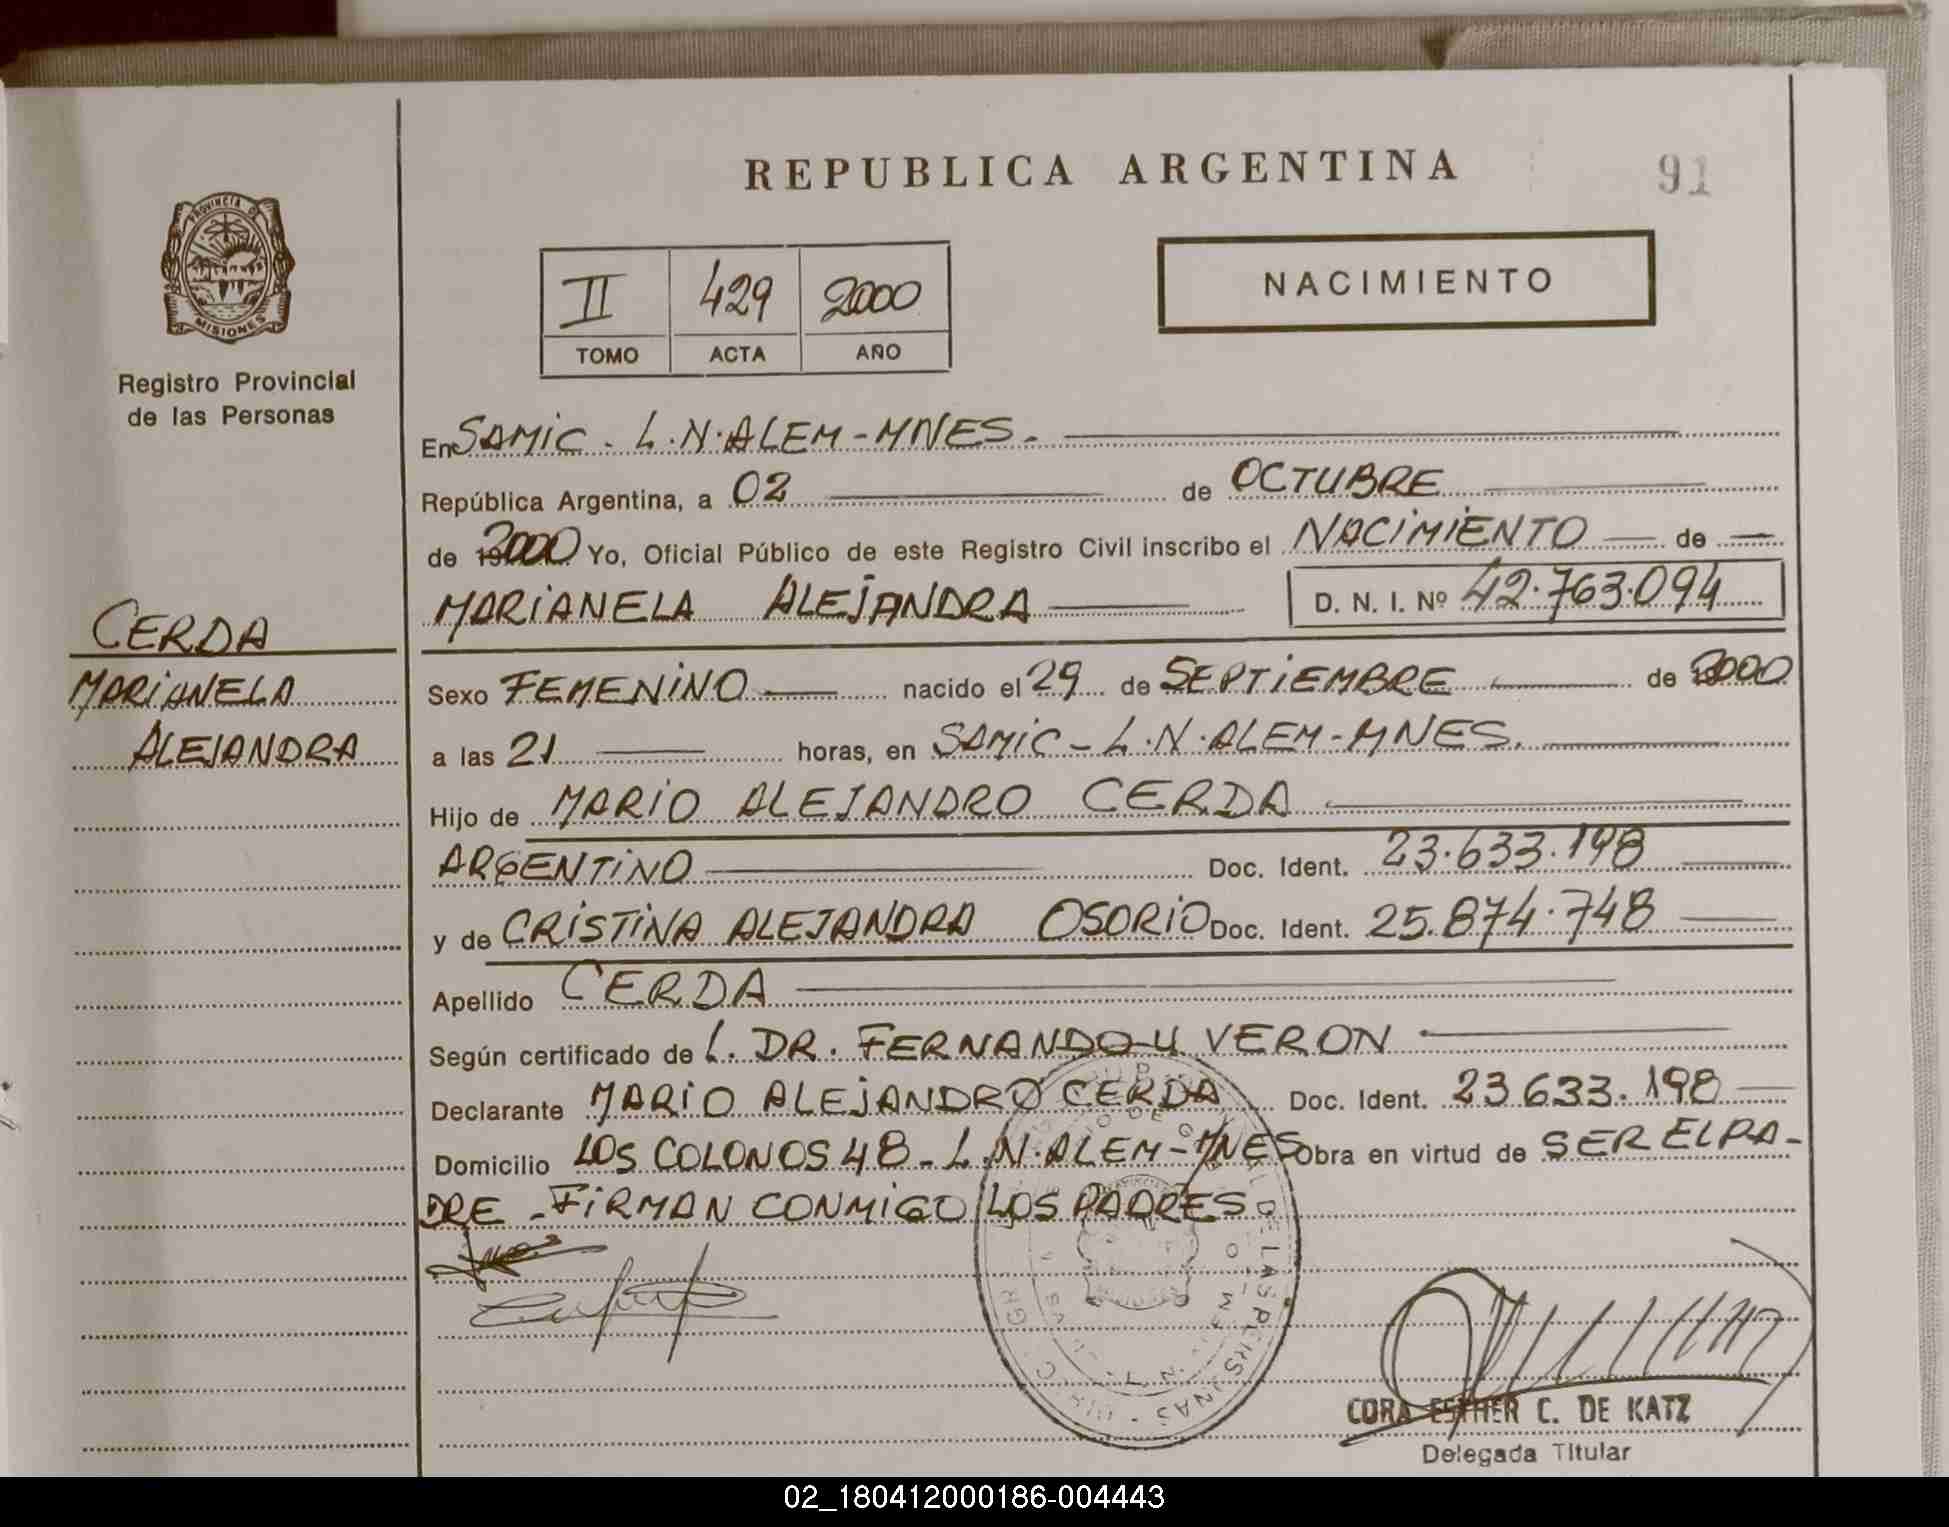 REPUBLICA ARGENTINA
91
PROVINCIA DE
MISIONES
Registro Provincial
de las Personas
NACIMIENTO
II 429 2000
TOMO ACTA AÑO
En SAMIC - L.N.ALEM - MNES.
República Argentina, a 02 de OCTUBRE
de 2000 Yo, Oficial Público de este Registro Civil inscribo el NACIMIENTO de
MARIANELA ALEJANDRA D. N. I. Nº 42.763.094
CERDA
MARIANELA
ALEJANDRA
Sexo FEMENINO nacido el 29 de SEPTIEMBRE de 2000
a las 21 horas, en SAMIC - L.N.ALEM - MNES.
Hijo de MARIO ALEJANDRO CERDA
ARGENTINO Doc. Ident. 23.633.198
y de CRISTINA ALEJANDRA OSORIO Doc. Ident. 25.874.748
Apellido CERDA
Según certificado de L. DR. FERNANDO U VERON
Declarante MARIO ALEJANDRO CERDA Doc. Ident. 23.633.198
Domicilio LOS COLONOS 48 - L.N.ALEM - MNES Obra en virtud de SER EL PA-
DRE - FIRMAN CONMIGO LOS PADRES
DE LAS PERSONAS
CORA ESTHER C. DE KATZ
Delegada Titular
02_180412000186-004443